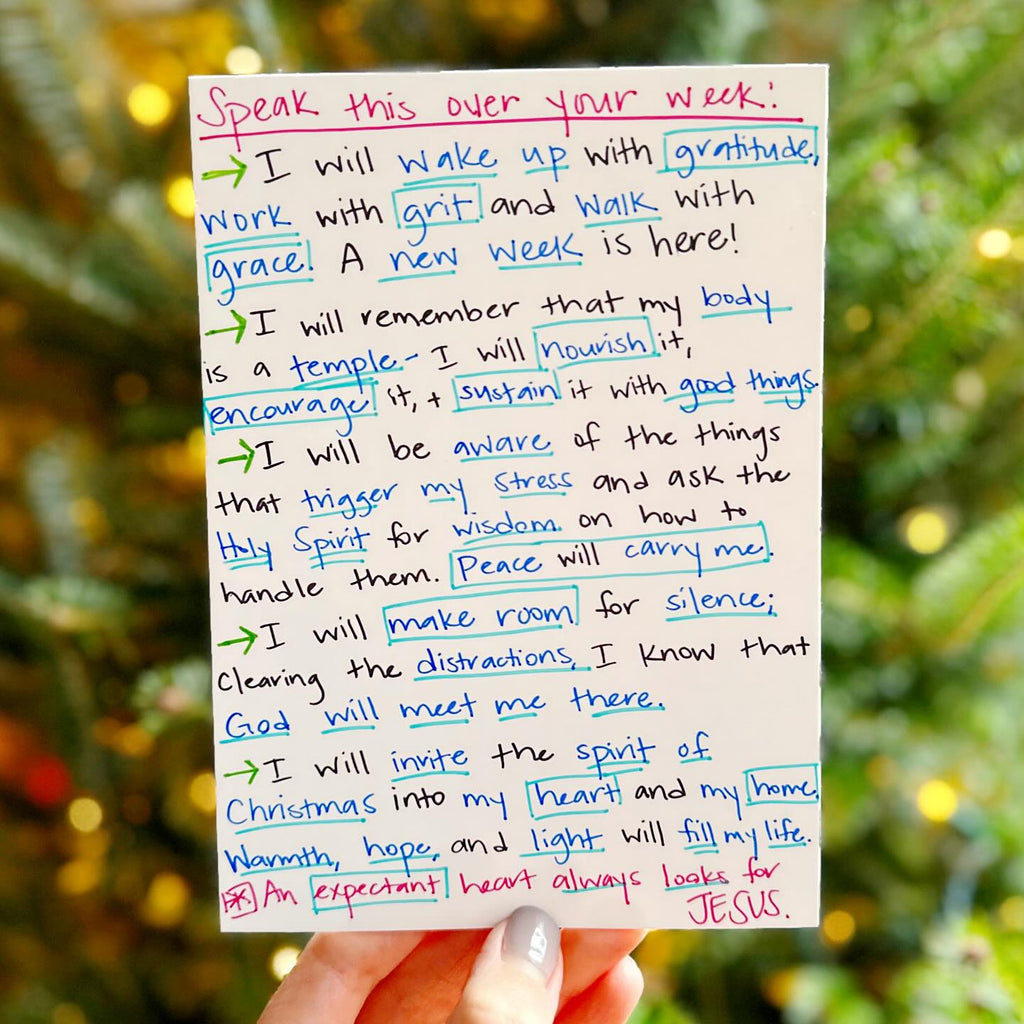 Speak this over your week:
→ I will wake up with gratitude,
work with grit and walk with
grace! A new week is here!
→ I will remember that my body
is a temple - I will nourish it,
encourage it, + sustain it with good things.
→ I will be aware of the things
that trigger my stress and ask the
Holy Spirit for wisdom on how to
handle them. Peace will carry me.
→ I will make room for silence;
clearing the distractions, I know that
God will meet me there.
→ I will invite the spirit of
Christmas into my heart and my home.
Warmth, hope, and light will fill my life.
* An expectant heart always looks for
JESUS.